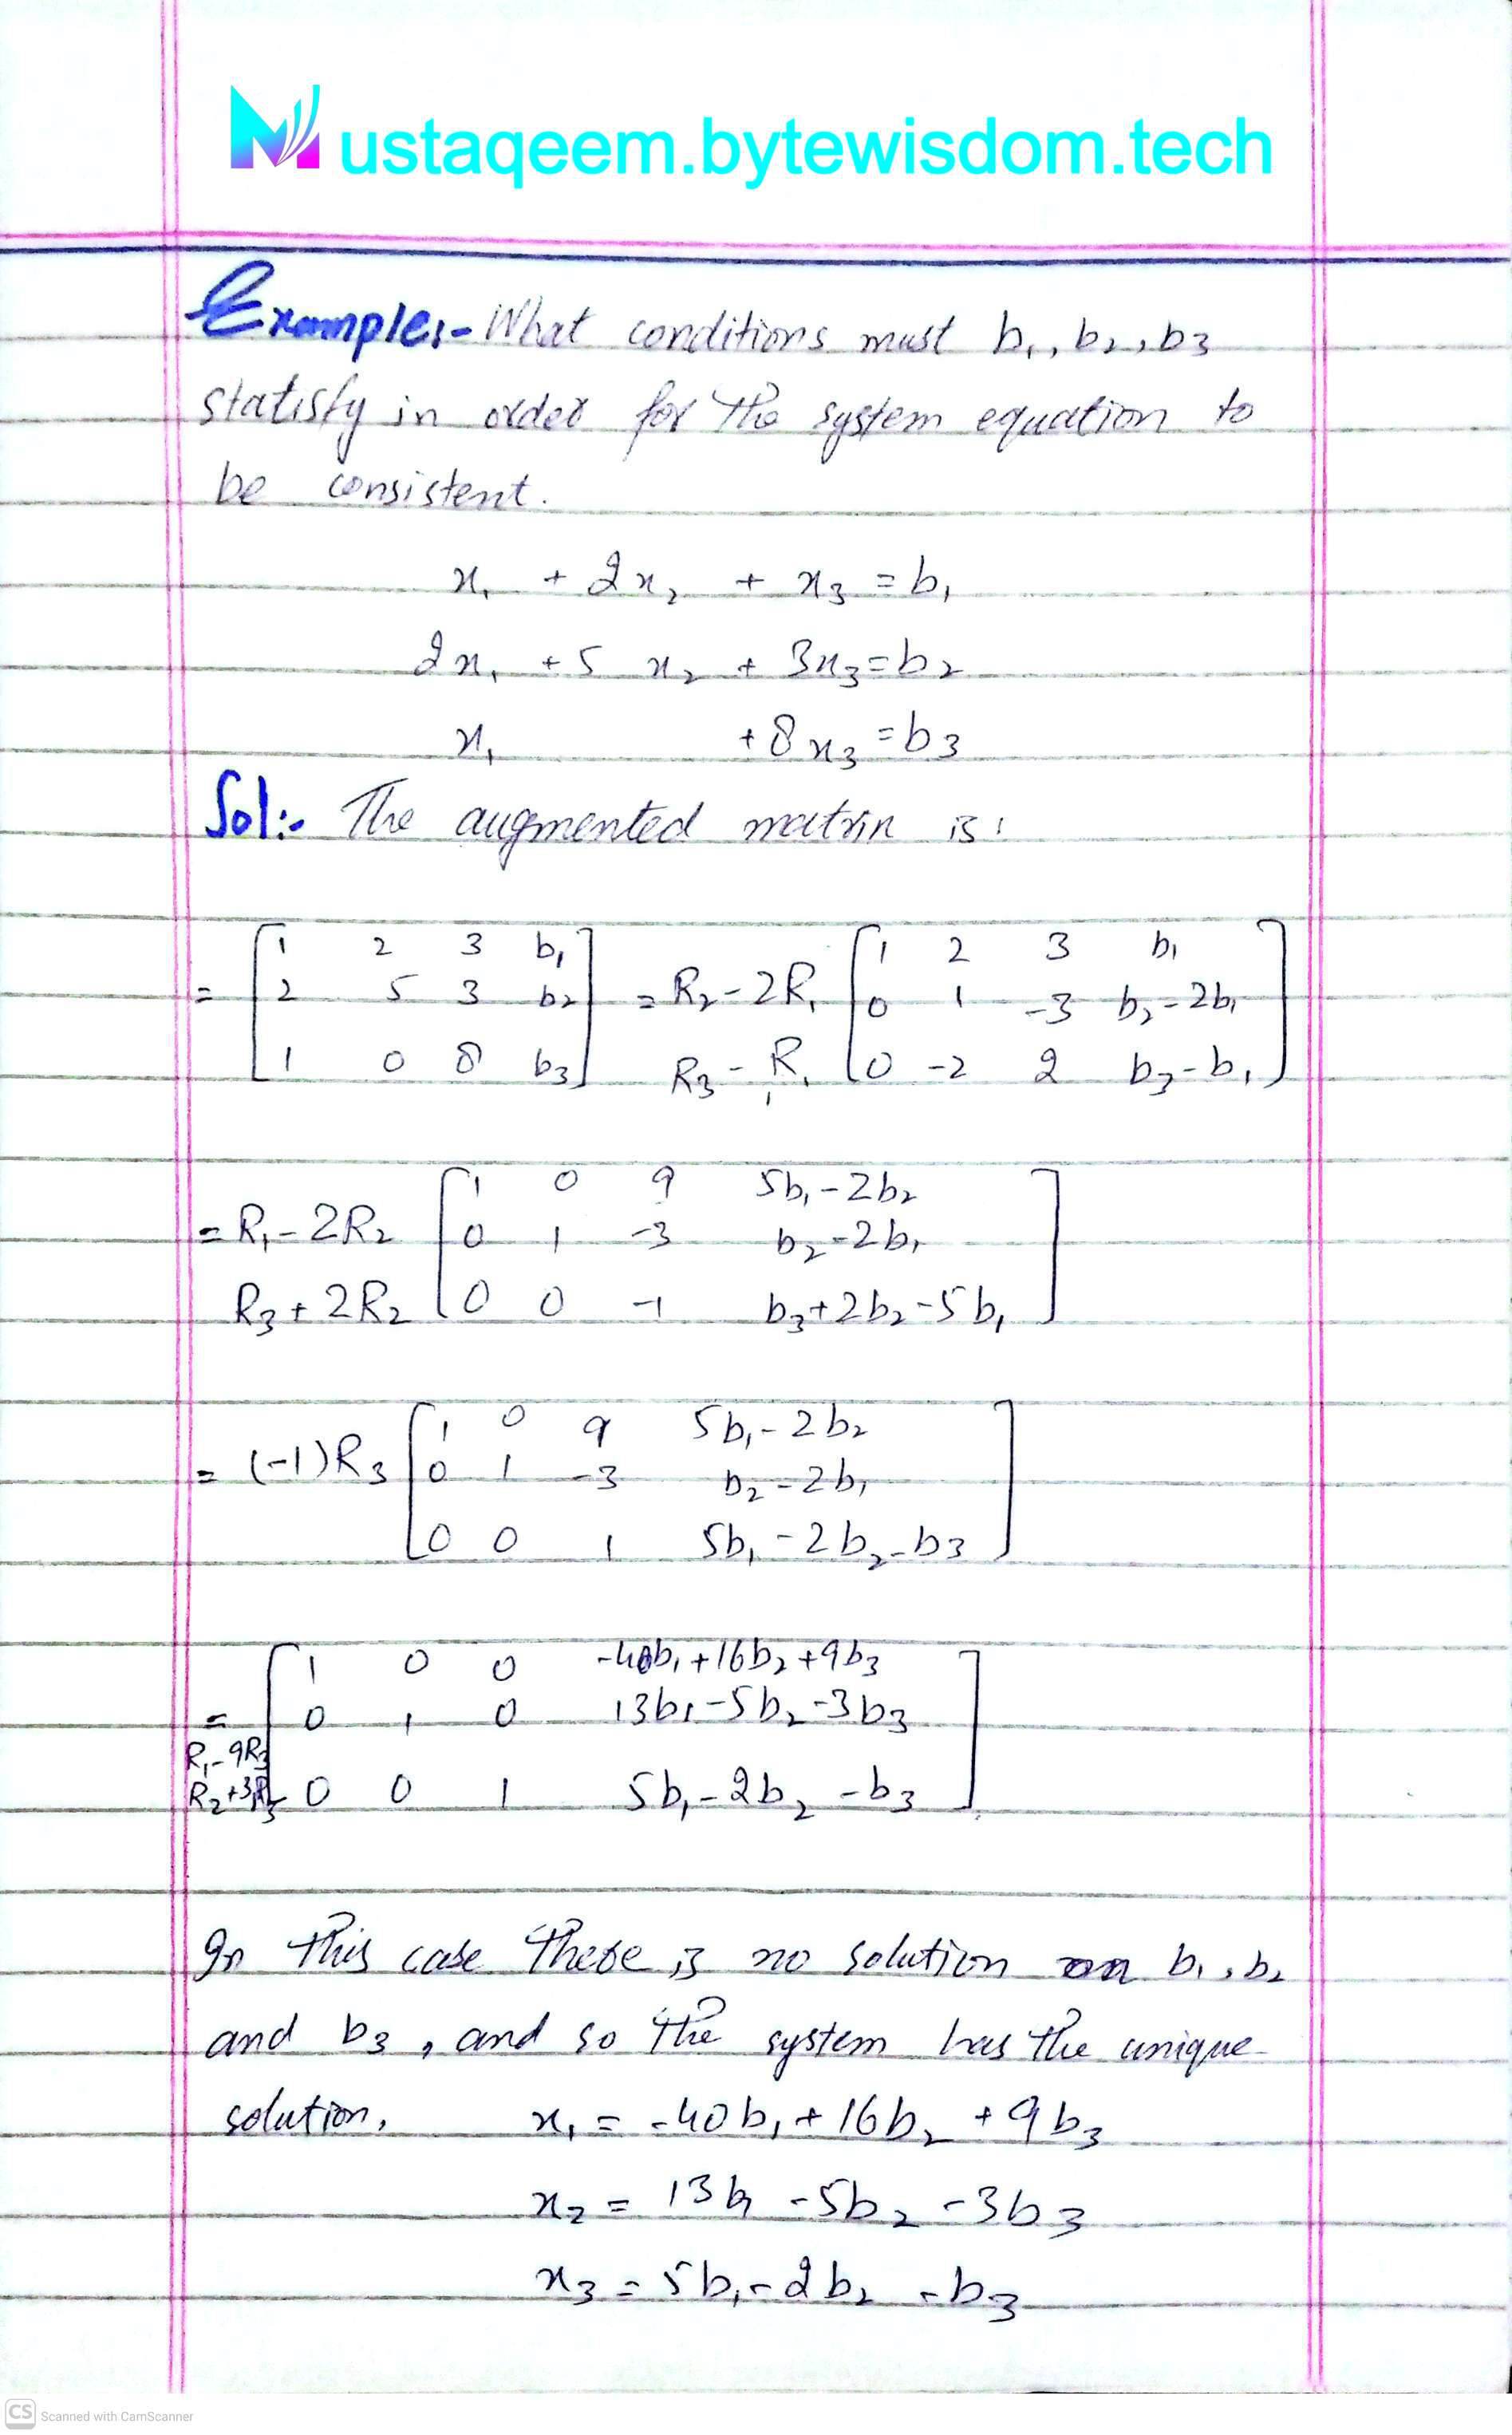 Mustaqeem.bytewisdom.tech
Example:- What conditions must b₁, b₂, b₃
statisfy in order for the system equation to
be consistent.
x₁ + 2x₂ + x₃ = b₁
2x₁ + 5 x₂ + 3x₃ = b₂
x₁ + 8x₃ = b₃
Sol:- The augmented matrix is:
= [1 2 3 b₁] = R₂-2R₁ [1 2 3 b₁]
[2 5 3 b₂] [0 1 -3 b₂-2b₁]
[1 0 8 b₃] R₃-R₁ [0 -2 2 b₃-b₁]
[1 0 9 5b₁-2b₂]
= R₁-2R₂ [0 1 -3 b₂-2b₁]
R₃+2R₂ [0 0 -1 b₃+2b₂-5b₁]
[1 0 9 5b₁-2b₂]
= (-1)R₃ [0 1 -3 b₂-2b₁]
[0 0 1 5b₁-2b₂-b₃]
[1 0 0 -40b₁+16b₂+9b₃]
= [0 1 0 13b₁-5b₂-3b₃]
R₁-9R₃
R₂+3R₃ [0 0 1 5b₁-2b₂-b₃]
In this case there is no solution on b₁, b₂
and b₃, and so the system has the unique
solution. x₁ = -40b₁+16b₂+9b₃
x₂ = 13b₁-5b₂-3b₃
x₃ = 5b₁-2b₂-b₃
CS Scanned with CamScanner